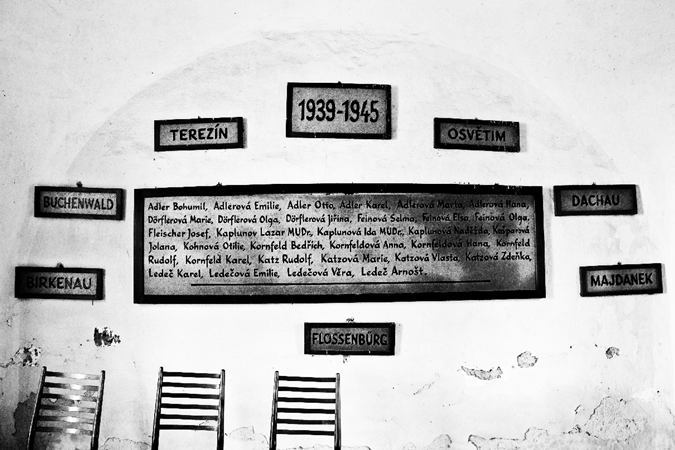 1939-1945
TEREZÍN
OSVĚTIM
BUCHENWALD
DACHAU
Adler Bohumil, Adlerová Emilie, Adler Otto, Adler Karel, Adlerová Marta, Adlerová Hana,
Dörflerová Marie, Dörflerová Olga, Dörflerová Jiřina, Feinová Selma, Feinová Elsa, Feinová Olga,
Fleischer Josef, Kaplunov Lazar MUDr., Kaplunová Ida MUDr., Kaplunová Naděžda, Kašparová
Jolana, Kohnová Otilie, Kornfeld Bedřich, Kornfeldová Anna, Kornfeldová Hana, Kornfeld
Rudolf, Kornfeld Karel, Katz Rudolf, Katzová Marie, Katzová Vlasta, Katzová Zdeňka,
Ledeč Karel, Ledečová Emilie, Ledečová Věra, Ledeč Arnošt.
BIRKENAU
MAJDANEK
FLOSSENBÜRG